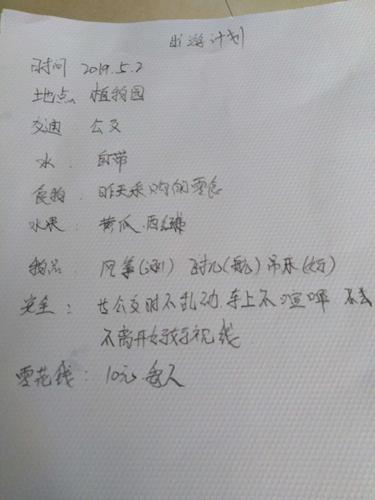 出游计划
时间 2019.5.2
地点 植物园
交通 公交
水: 自带
食物: 昨天采购的零食
水果: 黄瓜.西红柿
物品: 风筝( ) ( ) 吊床( )
安全: 坐公交时不乱动.车上不喧哗 不去
不离开 视线
零花钱: 10元.每人